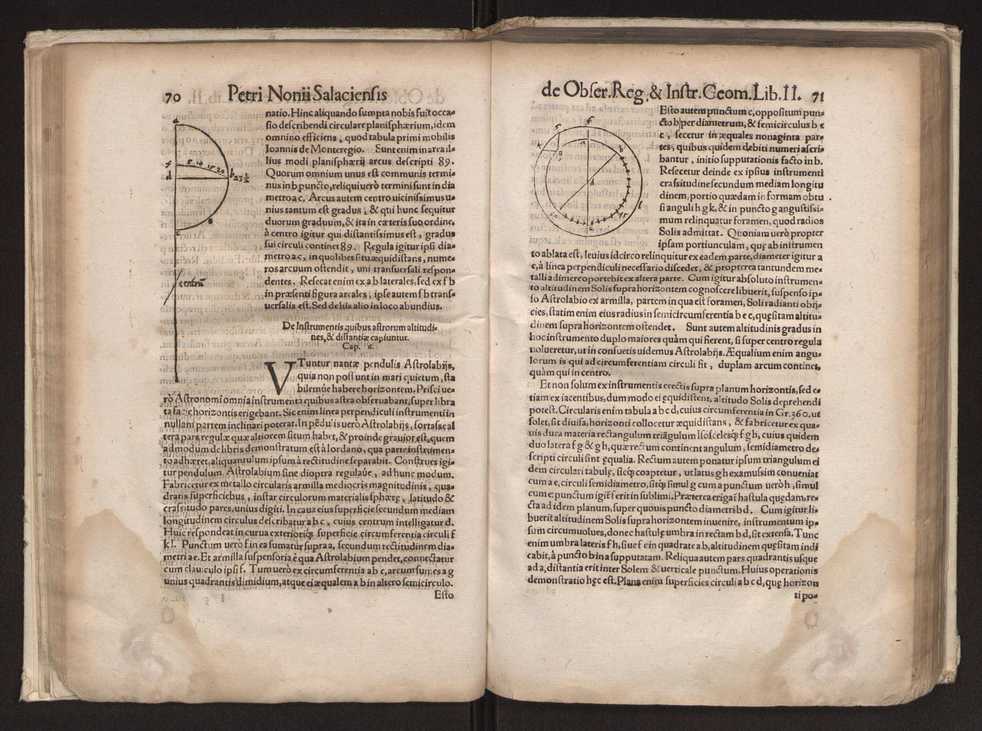 70 Petri Nonii Salaciensis
natio. Hinc aliquando sumpta nobis fuit occa-
sio describendi circulare planisphærium, idem
omnino efficiens, quod tabula primi mobilis
Ioannis de Monteregio. Sunt enim in area il-
lius modi planisphærij arcus descripti 89.
Quorum omnium unus est communis termi-
nus in b puncto, reliqui uerò termini sunt in dia
metro a c. Arcus autem centro uicinissimus u-
nius tantum est gradus, & qui hunc sequitur
duorum graduum, & ita in cæteris suo ordine,
à centro igitur qui distantissimus est, gradus
sui circuli continet 89. Regula igitur ipsi dia-
metro a c, in quolibet situ æquidistans, nume-
ros arcuum ostendit, uni transuersali respon-
dentes. Resecat enim ex a b laterales, sed ex f b
in præsenti figura arcales; ipse autem f b trans-
uersalis est. Sed de his alio in loco abundius.
De Instrumentis quibus astrorum altitudi-
nes, & distantiæ capiuntur.
Cap.
VTuntur nautæ pendulis Astrolabijs,
quia non possunt in mari quietum, sta
bilemue habere horizontem. Prisci ue-
rò Astronomi omnia instrumenta quibus astra obseruabant, super libra
ta facie horizontis erigebant. Sic enim linea perpendiculi instrumenti in
nullam partem inclinari poterat. In pẽdulis uerò Astrolabijs, fortasse al
tera pars regulæ quæ altiorem situm habet, & proinde grauior est, quem
admodum de libris demonstratum est à Iordano, qua parte instrumen-
to adhæret, aliquantulum ipsum à rectitudine separabit. Construes igi-
tur pendulum Astrolabium sine dioptra regulaue, ad hunc modum.
Fabricetur ex metallo circularis armilla mediocris magnitudinis, qua-
dratis superficiebus, instar circulorum materialis sphæræ, latitudo &
crassitudo pares, unius digiti. In caua eius superficie secundum mediam
longitudinem circulus describatur a b c, cuius centrum intelligatur d.
Huic respondeat in curua exterioriq; superficie circumferentia circuli f
k l. Punctum uerò f in ea sumatur supra a, secundum rectitudinem dia-
metri a e. Et armilla suspensoria è qua Astrolabium pendet, connectatur
cum clauiculo ipsi f. Tum uerò ex circumferentia a b c, arcus sumes a g
unius quadrantis dimidium, atque ei æqualem a b in altero semicirculo.
Esto
a
f
d
b
centrũ
de Obser. Reg. & Instr. Geom. Lib. II. 71
Esto autem punctum c, oppositum pun-
cto b per diametrum, & semicirculus b e
c, secetur in æquales nonaginta par-
tes, quibus quidem debiti numeri ascri-
bantur, initio supputationis facto in b.
Resecetur deinde ex ipsius instrumenti
crassitudine secundum mediam longitu
dinem, portio quædam in formam obtu
si anguli h g k, & in puncto g angustissi-
mum relinquatur foramen, quod radios
Solis admittat. Quoniam uerò propter
ipsam portiunculam, quę ab instrumen
to ablata est, leuius idcirco relinquitur ex eadem parte, diameter igitur a
e, à linea perpendiculi necessario discedet, & propterea tantundem me-
talli adimere oportebit ex altera parte. Cum igitur absoluto instrumen-
to altitudinem Solis supra horizontem cognoscere libuerit, suspenso ip-
so Astrolabio ex armilla, partem in qua est foramen, Soli radianti obij-
cies, statim enim eius radius in semicircumferentia b e c, quæsitam altitu-
dinem supra horizontem ostendet. Sunt autem altitudinis gradus in
hoc instrumento duplo maiores quàm qui fierent, si super centro regula
uolueretur, ut in consuetis uidemus Astrolabijs. Æqualium enim angu-
lorum is qui ad circumferentiam circuli fit, duplam arcum continet,
quàm qui in centro.
Et non solum ex instrumentis erectis supra planum horizontis, sed e-
tiam ex iacentibus, dum modo ei æquidistent, altitudo Solis deprehendi
potest. Circularis enim tabula a b c d, cuius circumferentia in Gr. 360. ut
solet, sit diuisa, horizonti collocetur æquidistans, & fabricetur ex qua-
uis dura materia rectangulum triãgulum Isoscelesq; f g h, cuius quidem
duo latera f g & g h, quæ rectum continent angulum, semidiametro de-
scripti circuli sint ęqualia. Rectum autem ponatur ipsum triangulum ei
dem circulari tabulę, sicq; coaptetur, ut latus g h examussim conueniat
cum a e, circuli semidiametro, sitq; simul g cum a puncto, punctum uerò h, simul
cum e punctum igit̃ f erit in sublimi. Præterea erigat̃ hastula quędam re-
cta ad idem planum, super quouis puncto diametri b d. Cum igitur li-
buerit altitudinem Solis supra horizontem inuenire, instrumentum ip-
sum circumuolues, donec hastulę umbra in rectam b d, sit extensa. Tunc
enim umbra lateris f h, siue f e in quadrate a b, altitudinem quęsitam indi
cabit, à puncto b in a supputatam. Reliqua autem pars quadrantis usque
ad a, distantia erit inter Solem & uerticale punctum. Huius operationis
demonstratio hęc est. Plana enim superficies circuli a b c d, quę horizon
ti po-